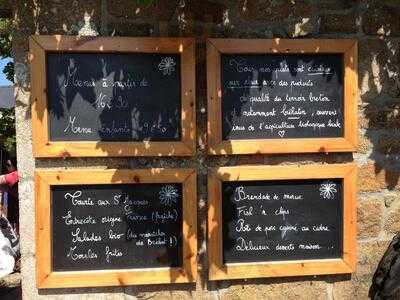 Menus à partir de
16 €90
Menu enfants 9 €50
Tous nos plats sont cuisinés
sur place avec des produits
de qualité du terroir breton
et notamment bellilois, ou
issus de l'agriculture biologique
Tourte aux St Jacques
Entrecôte origine France (frites)
Salades bio (du maraîcher
Moules frites
Brandade de morue
Fish n chips
Rôti de porc cuisiné au cidre
Délicieux desserts maison ...